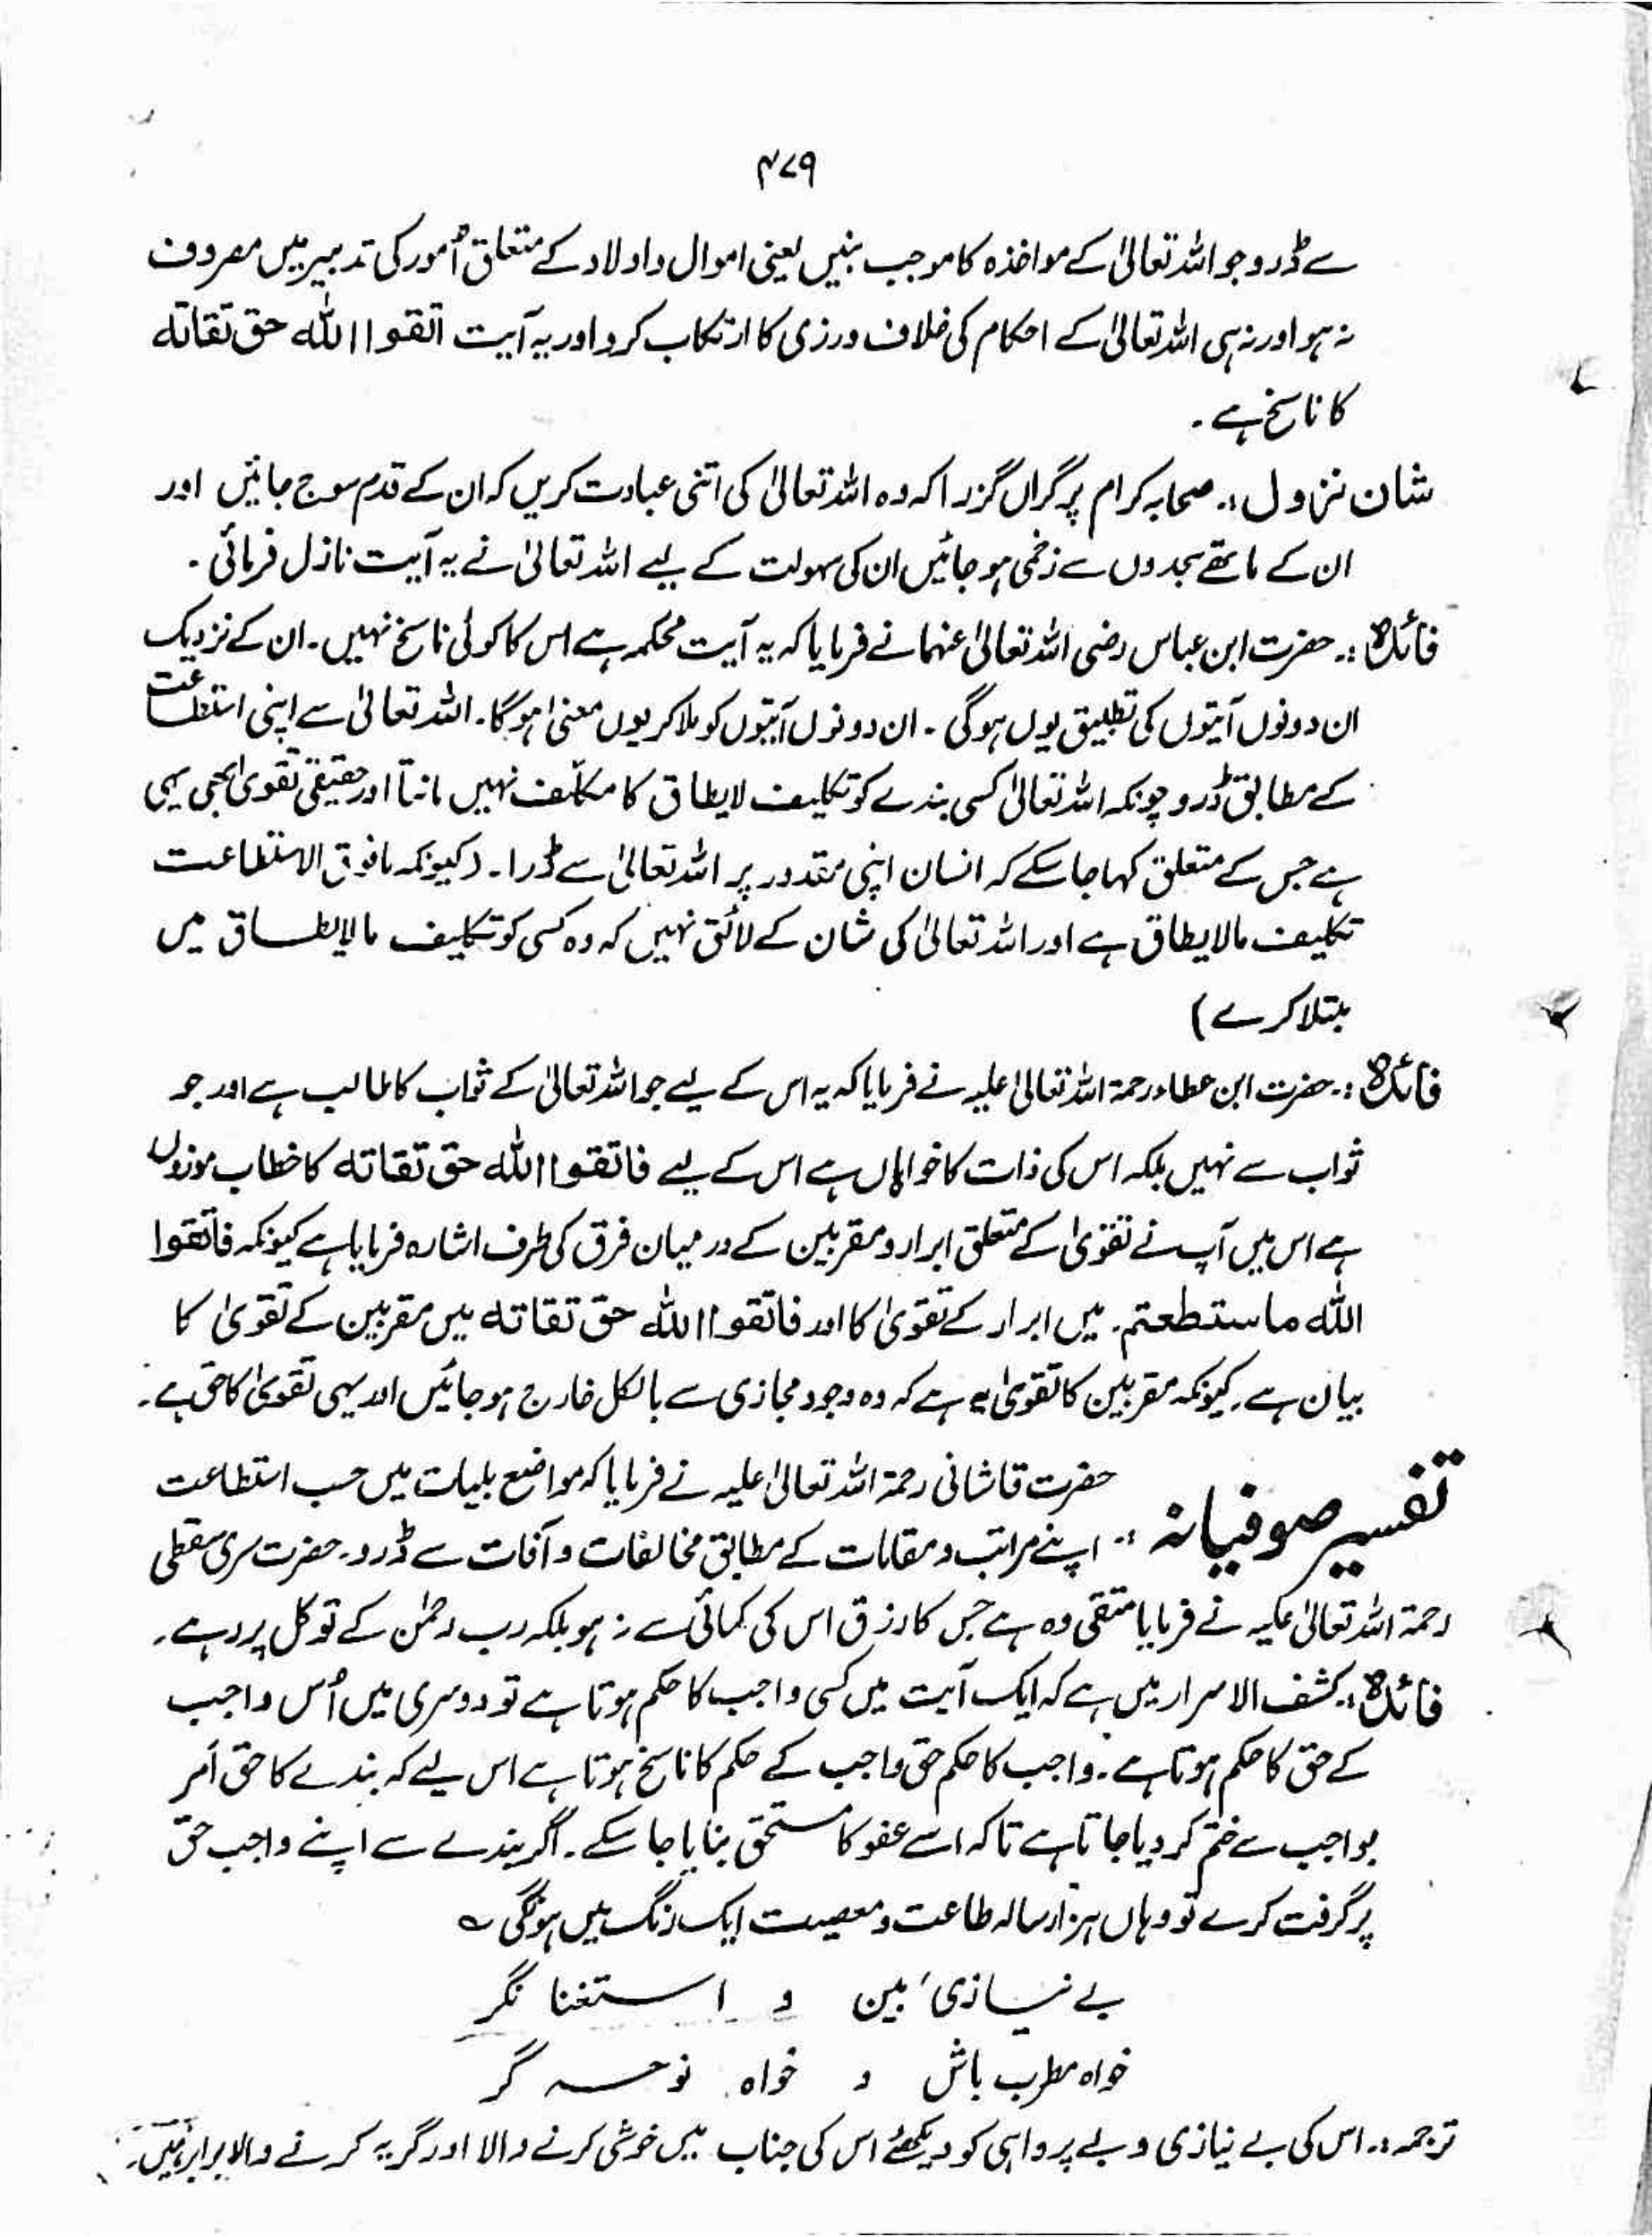 ۴۷۹
سے ڈرو جو اللہ تعالیٰ کے مواخذہ کا موجب بنیں یعنی اموال و اولاد کے متعلق اُمور کی تدبیر میں مصروف
نہ ہو اور نہ ہی اللہ تعالیٰ کے احکام کی خلاف ورزی کا ارتکاب کرو اور یہ آیت اتقوا اللّٰہ حق تقاتہ
کا ناسخ ہے۔
شان نزول :۔ صحابہ کرام پر گراں گزرا کہ وہ اللہ تعالیٰ کی اتنی عبادت کریں کہ ان کے قدم سوج جائیں اور
ان کے ماتھے سجدوں سے زخمی ہو جائیں ان کی سہولت کے لیے اللہ تعالیٰ نے یہ آیت نازل فرمائی۔
فائدہ :۔ حضرت ابن عباس رضی اللہ تعالیٰ عنہما نے فرمایا کہ یہ آیت محکمہ ہے اس کا کوئی ناسخ نہیں۔ ان کے نزدیک
ان دونوں آیتوں کی تطبیق یوں ہوگی۔ ان دونوں آیتوں کو ملا کر یوں معنیٰ ہوگا۔ اللہ تعالیٰ سے اپنی استطاعت
کے مطابق ڈرو چونکہ اللہ تعالیٰ کسی بندے کو تکلیف لایطاق کا مکلّف نہیں بناتا اور حقیقی تقویٰ بھی یہی
ہے جس کے متعلق کہا جا سکے کہ انسان اپنی مقدور پر اللہ تعالیٰ سے ڈرا۔ (کیونکہ مافوق الاستطاعت
تکلیف مالایطاق ہے اور اللہ تعالیٰ کی شان کے لائق نہیں کہ وہ کسی کو تکلیف مالایطاق میں
مبتلا کرے)
فائدہ :۔ حضرت ابن عطاء رحمۃ اللہ تعالیٰ علیہ نے فرمایا کہ یہ اس کے لیے جو اللہ تعالیٰ کے ثواب کا طالب ہے اور جو
ثواب سے نہیں بلکہ اس کی ذات کا خواہاں ہے اس کے لیے فاتقوا اللّٰہ حق تقاتہ کا خطاب موزوں
ہے اس میں آپ نے تقویٰ کے متعلق ابرار و مقربین کے درمیان فرق کی طرف اشارہ فرمایا ہے کیونکہ فاتقوا
اللّٰہ ماستطعتم۔ میں ابرار کے تقویٰ کا اور فاتقوا اللّٰہ حق تقاتہ میں مقربین کے تقویٰ کا
بیان ہے۔ کیونکہ مقربین کا تقویٰ یہ ہے کہ وہ وجود مجازی سے بالکل خارج ہو جائیں اور یہی تقویٰ کا حق ہے۔
تفسیر صوفیانہ :۔ حضرت قاشانی رحمۃ اللہ تعالیٰ علیہ نے فرمایا کہ مواضع بلیات میں حسب استطاعت
اپنے مراتب و مقامات کے مطابق مخالفات و آفات سے ڈرو۔ حضرت سری سقطی
رحمۃ اللہ تعالیٰ علیہ نے فرمایا متقی وہ ہے جس کا رزق اس کی کمائی سے نہ ہو بلکہ رب رحمٰن کے توکل پر رہے۔
فائدہ :۔ کشف الاسرار میں ہے کہ ایک آیت میں کسی واجب کا حکم ہوتا ہے تو دوسری میں اُس واجب
کے حق کا حکم ہوتا ہے۔ واجب کا حکم حق واجب کے حکم کا ناسخ ہوتا ہے اس لیے کہ بندے کا حق اَمر
بواجب سے ختم کر دیا جاتا ہے تاکہ اسے عفو کا مستحق بنایا جا سکے۔ اگر بندے سے اپنے واجب حق
پر گرفت کرے تو وہاں ہزار سالہ طاعت و معصیت ایک رنگ میں ہونگی ؎
بے نیازیٔ بین و استغنا نگر
خواہ مطرب باش و خواہ نوحہ گر
ترجمہ :۔ اس کی بے نیازی و بے پرواہی کو دیکھئے اس کی جناب میں خوشی کرنے والا اور گریہ کرنے والا برابر ہیں۔